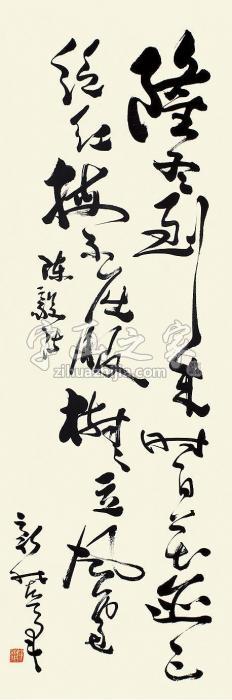 隆冬到来时百花迹已
绝红梅不屈服樹々立风雪
陈毅诗
字画之家
zihuazhijia.com